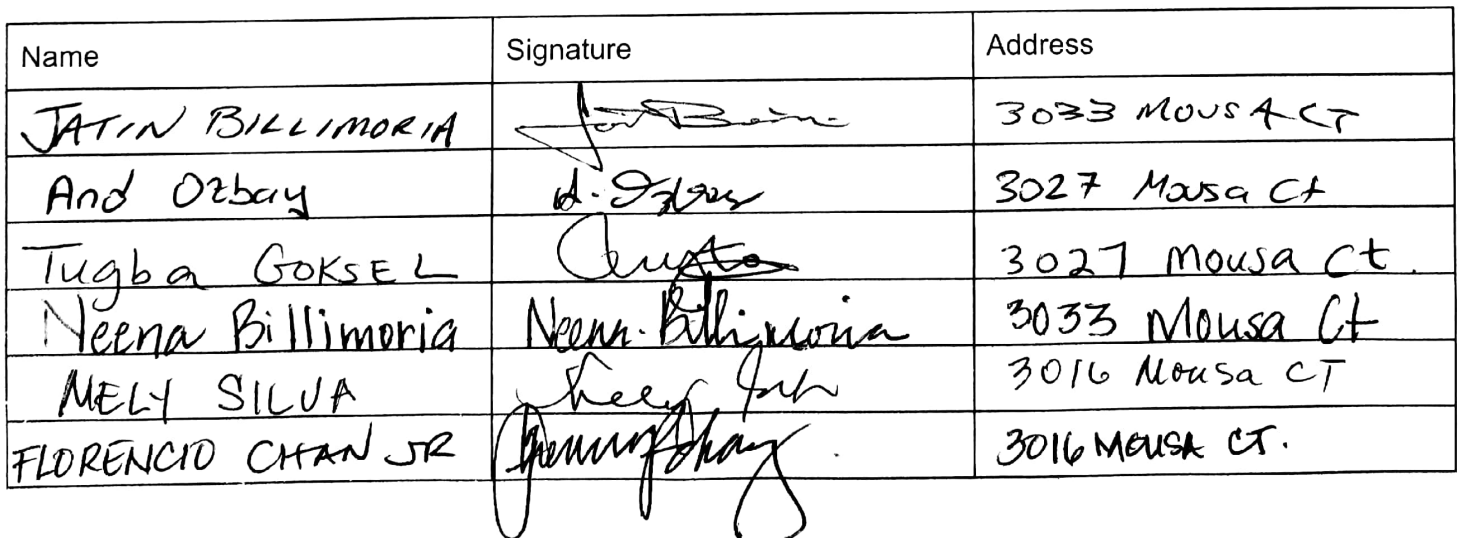 Name Signature Address
JATIN BILLIMORIA 3033 MOUSA CT
And Ozbay 3027 Mousa Ct
Tugba GOKSEL 3027 Mousa Ct.
Neena Billimoria Neena Billimoria 3033 Mousa Ct
MELY SILVA 3016 Mousa CT
FLORENCIO CHAN JR 3016 MOUSA CT.